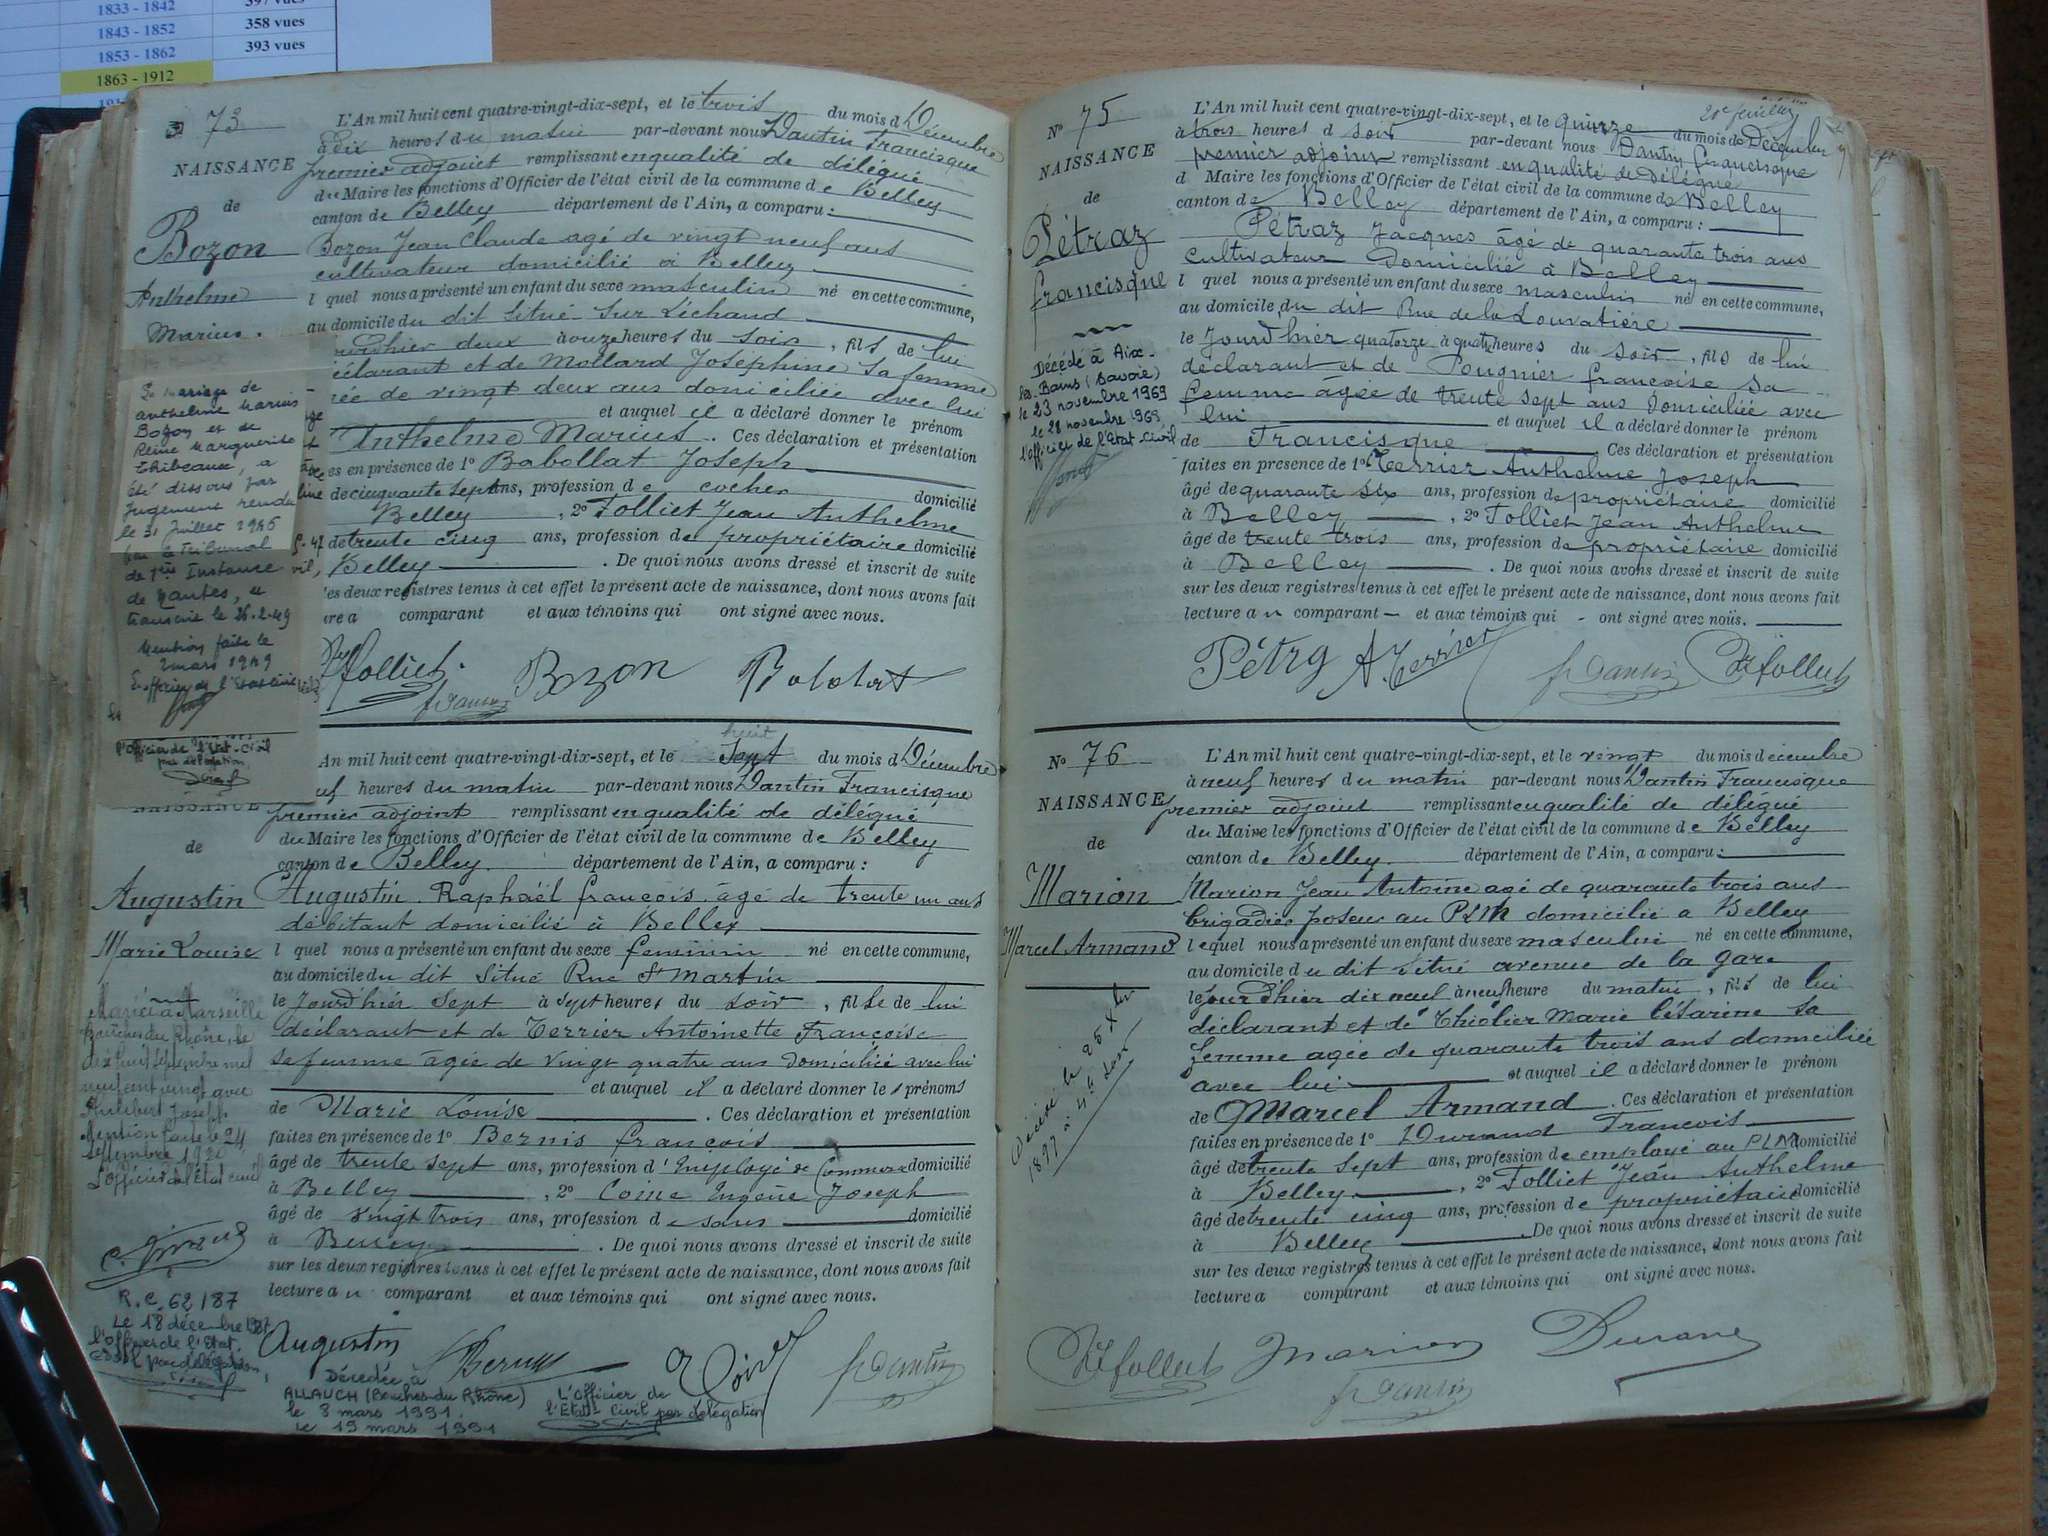 1833 - 1842 397 vues
1843 - 1852 358 vues
1853 - 1862 393 vues
1863 - 1912
73
NAISSANCE
de
Bozon
Anthelme
Marius.
L'An mil huit cent quatre-vingt-dix-sept, et le trois du mois d Décembre
à dix heures du matin par-devant nous Dantin Francisque
premier adjoint remplissant en qualité de délégué
du Maire les fonctions d'Officier de l'état civil de la commune de Belley
canton de Belley département de l'Ain, a comparu :
Bozon Jean Claude agé de vingt neuf ans
cultivateur domicilié à Belley
l quel nous a présenté un enfant du sexe masculin né en cette commune,
au domicile du dit situé sur Léchaud
hier deux à onze heures du soir, fils de lui
déclarant et de Mollard Joséphine sa femme
ée de vingt deux ans domiciliée avec lui
et auquel il a déclaré donner le prénom
Anthelme Marius. Ces déclaration et présentation
es en présence de 1º Babollat Joseph
de cinquante sept ans, profession de cocher domicilié
Belley, 2º Folliet Jean Anthelme
de trente cinq ans, profession de propriétaire domicilié
Belley. De quoi nous avons dressé et inscrit de suite
les deux registres tenus à cet effet le présent acte de naissance, dont nous avons fait
ure a comparant et aux témoins qui ont signé avec nous.
Le mariage de
anthelme Marius
Bozon et de
Reine Marguerite
Thibeaux, a
été dissous par
Jugement rendu
le 31 Juillet 1946
par le Tribunal
de 1ère Instance
de Nantes, et
transcrit le 26-2-49
Mention faite le
2 mars 1949
L'officier de l'Etat civil
l'officier de l'Etat-Civil
par délégation
Jh folliet. fr Dantin Bozon Babolat
NAISSANCE
de
Augustin
Marie Louise
An mil huit cent quatre-vingt-dix-sept, et le huit Sept du mois d Décembre
neuf heures du matin par-devant nous Dantin Francisque
premier adjoint remplissant en qualité de délégué
du Maire les fonctions d'Officier de l'état civil de la commune de Belley
canton de Belley département de l'Ain, a comparu :
Augustin Raphaël françois âgé de trente un ans
débitant domicilié à Belley
l quel nous a présenté un enfant du sexe feminin né en cette commune,
au domicile du dit situé Rue St Martin
le Jourd'hier sept à sept heures du soir, fille de lui
déclarant et de Terrier Antoinette Françoise
sa femme agée de vingt quatre ans domiciliée avec lui
et auquel il a déclaré donner le s prénoms
de Marie Louise. Ces déclaration et présentation
faites en présence de 1º Bernis françois
âgé de trente sept ans, profession d'Employé de Commerce domicilié
à Belley, 2º Coine Eugène Joseph
âgé de vingt trois ans, profession de sans domicilié
à Belley. De quoi nous avons dressé et inscrit de suite
sur les deux registres tenus à cet effet le présent acte de naissance, dont nous avons fait
lecture a u comparant et aux témoins qui ont signé avec nous.
Mariée à Marseille
Bouches du Rhône, le
dix huit Septembre mil
neuf cent vingt avec
Philibert Joseph
Mention faite le 24
septembre 1920
L'Officier de l'Etat civil
R.C. 62/87
Le 18 décembre 1987
l'officier de l'Etat
Civil par délégation,
Augustin Bernis fr Dantin
Décédée à
ALLAUCH (Bouches du Rhône)
le 3 mars 1991.
le 19 mars 1991
L'officier de
l'Etat-Civil par délégation
20e feuillet
No 75
NAISSANCE
de
Pétraz
francisque
Décédé à Aix-
les-Bains (Savoie)
le 23 novembre 1969
le 28 novembre 1969
l'officier de l'Etat Civil
L'An mil huit cent quatre-vingt-dix-sept, et le quinze du mois de Décembre
à trois heures d soir par-devant nous Dantin francisque
premier adjoint remplissant en qualité de Délégué
d Maire les fonctions d'Officier de l'état civil de la commune de Belley
canton de Belley département de l'Ain, a comparu :
Pétraz Jacques âgé de quarante trois ans
cultivateur Domicilié à Belley
l quel nous a présenté un enfant du sexe masculin né en cette commune,
au domicile du dit Rue de la Louvatière
le Jourd'hier quatorze à quatre heures du soir, fils de lui
déclarant et de Pougnier françoise sa
femme âgée de trente sept ans Domiciliée avec
lui et auquel il a déclaré donner le prénom
de Francisque. Ces déclaration et présentation
faites en presence de 1º Terrier Anthelme Joseph
âgé de quarante six ans, profession de propriétaire domicilié
à Belley, 2º Folliet Jean Anthelme
âgé de trente trois ans, profession de propriétaire domicilié
à Belley. De quoi nous avons dressé et inscrit de suite
sur les deux registres tenus à cet effet le présent acte de naissance, dont nous avons fait
lecture a u comparant et aux témoins qui ont signé avec nous.
Pétra A. Terrier fr Dantin Jh folliet
No 76
NAISSANCE
de
Marion
Marcel Armand
Décédé le 25 Xbre
1897 à 4 h soir
L'An mil huit cent quatre-vingt-dix-sept, et le vingt du mois d écembre
à neuf heures du matin par-devant nous Dantin Francisque
premier adjoint remplissant en qualité de délégué
du Maire les fonctions d'Officier de l'état civil de la commune de Belley
canton de Belley. département de l'Ain, a comparu :
Marion Jean Antoine agé de quarante trois ans
brigadier poseur au PLM domicilié a Belley
lequel nous a présenté un enfant du sexe masculin né en cette commune,
au domicile du dit situé avenue de la gare
le jour d'hier dix neuf à neuf heure du matin, fils de lui
déclarant et de Thiolier Marie Césarine sa
femme agée de quarante trois ans domiciliée
avec lui et auquel il a déclaré donner le prénom
de Marcel Armand. Ces déclaration et présentation
faites en présence de 1º Durand Francois
âgé de trente sept ans, profession de employé au PLM domicilié
à Belley, 2º Folliet Jean Anthelme
âgé de trente cinq ans, profession de propriétaire domicilié
à Belley. De quoi nous avons dressé et inscrit de suite
sur les deux registres tenus à cet effet le présent acte de naissance, dont nous avons fait
lecture a comparant et aux témoins qui ont signé avec nous.
Jh folliet Marion Durand
fr Dantin